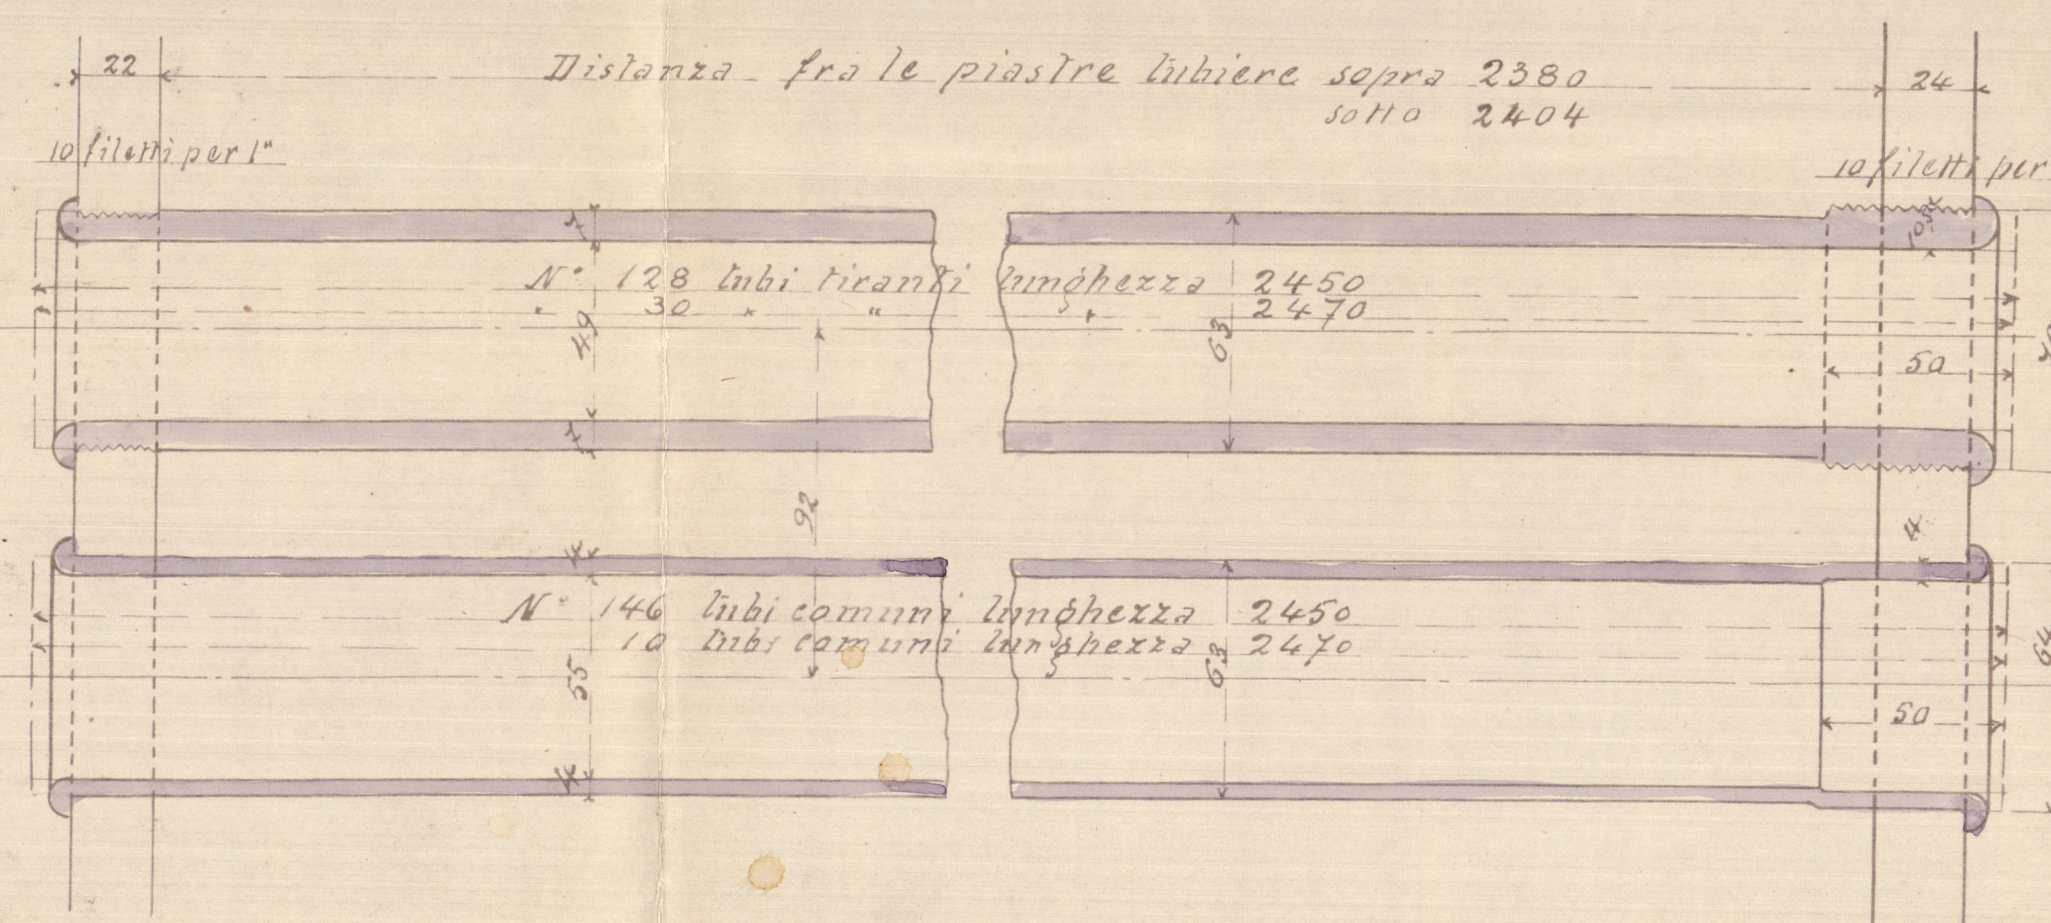 22 Distanza fra le piastre tubiere sopra 2380 24
sotto 2404
10 filetti per 1"
10 filetti per
7
N° 128 tubi tiranti lunghezza 2450
" 30 " " " 2470
49
63
50
7
92
4
4
N° 146 tubi comuni lunghezza 2450
10 tubi comuni lunghezza 2470
55
63
64
50
4